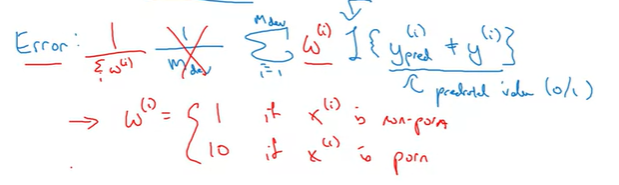 Error: 1/(Σ_i w^(i)) 1/m_dev Σ_{i=1}^{m_dev} w^(i) 𝟙{y_pred^(i) ≠ y^(i)}
predicted value (0/1)
→ w^(i) = { 1 if x^(i) is non-porn
10 if x^(i) is porn